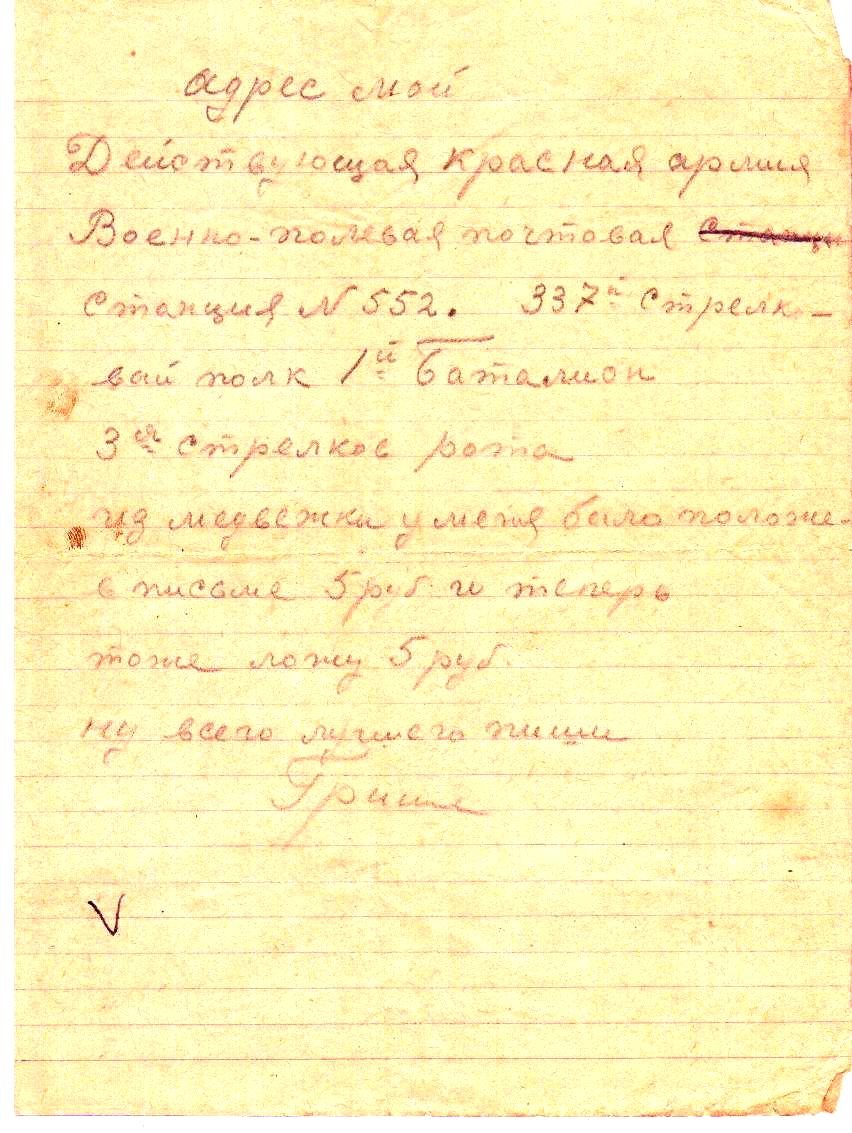 адрес мой
Действующая красная армия
Военно-полевая почтовая станци
станция N 552. 337й стрелк-
вай полк 1й Баталион
3я стрелков рота
из медвежки у меня было положе-
в письме 5 руб. и теперь
тоже ложу 5 руб.
ну всего лучшего пиши
Гриша
V